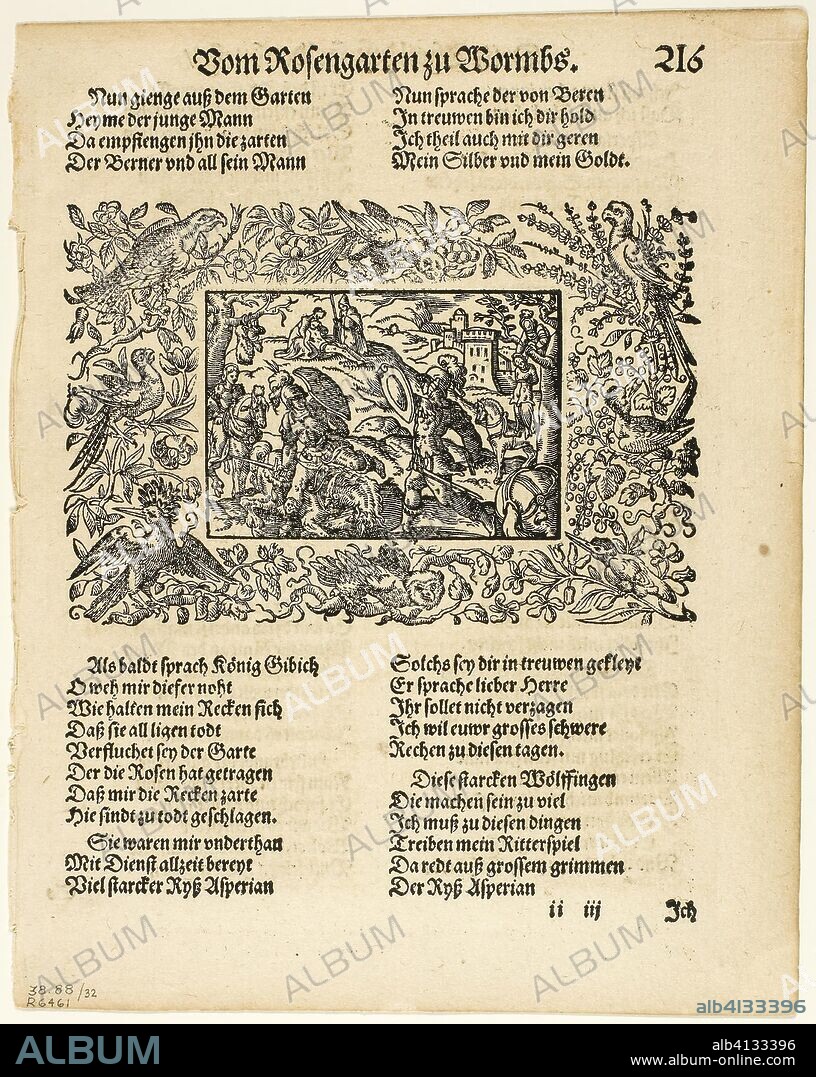 Vom Rosengarten zu Wormbs. 216
Nun gienge auß dem Garten
Heyme der junge Mann
Da empfiengen jhn die zarten
Der Berner vnd all sein Mann
Nun sprache der von Beren
In treuwen bin ich dir hold
Ich theil auch mit dir geren
Mein Silber vnd mein Goldt.
Als baldt sprach König Gibich
O weh mir dieser noht
Wie halten mein Recken sich
Daß sie all ligen todt
Verfluchet sey der Garte
Der die Rosen hat getragen
Daß mir die Recken zarte
Hie sindt zu todt geschlagen.
Sie waren mir vnderthan
Mit Dienst allzeit bereyt
Viel starcker Ryß Asperian
Solchs sey dir in treuwen gekleyt
Er sprache lieber Herre
Ihr sollet nicht verzagen
Ich wil euwr grosses schwere
Rechen zu diesen tagen.
Diese starcken Wölffingen
Die machen sein zu viel
Ich muß zu diesen dingen
Treiben mein Ritterspiel
Da redt auß grossem grimmen
Der Ryß Asperian
ii iij Ich
38.88/32
R6461
alb4133396
ALBUM
alb4133396
www.album-online.com